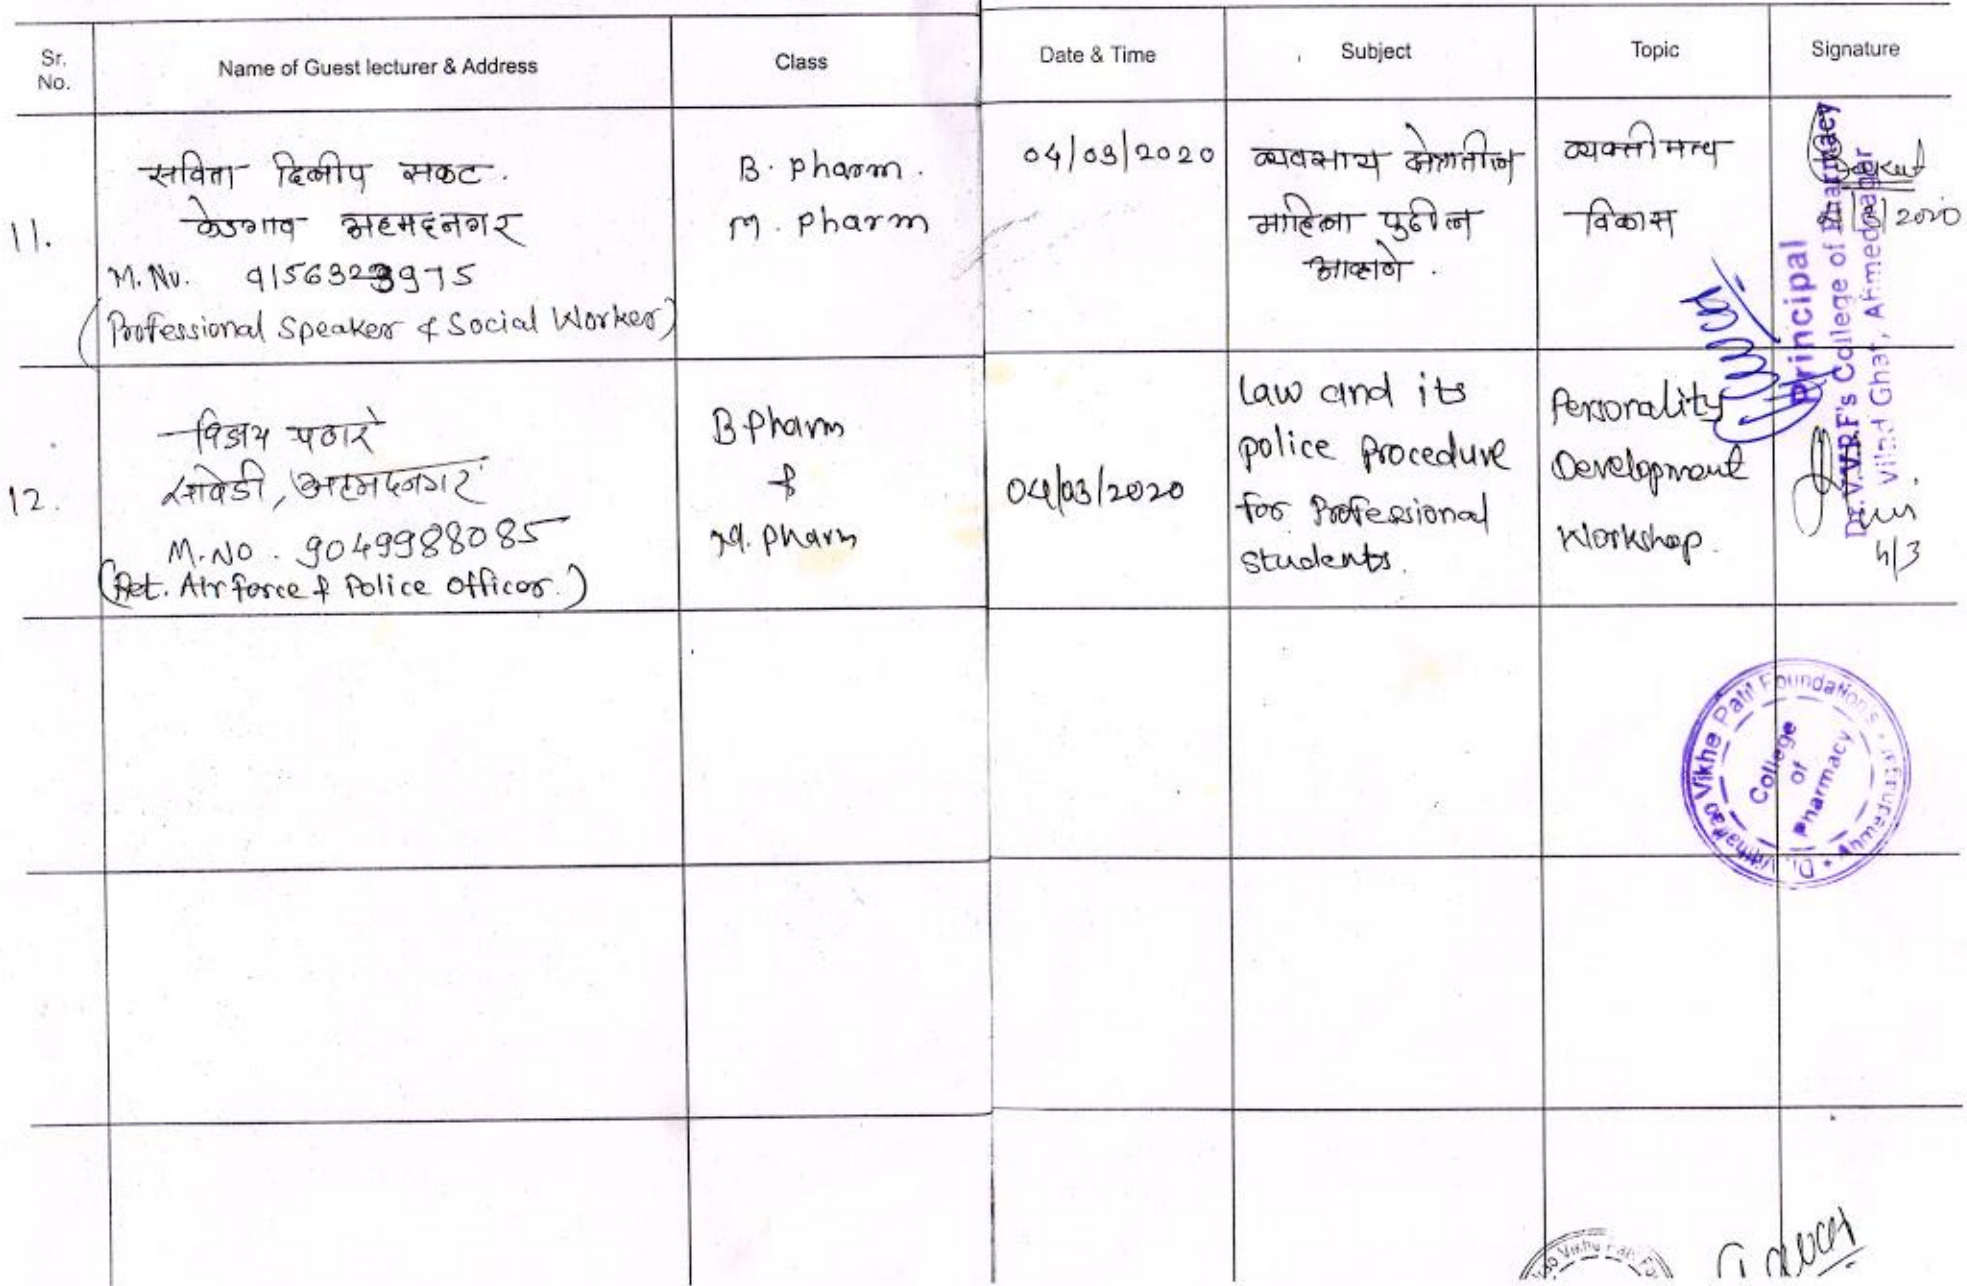 Sr. No.
Name of Guest lecturer & Address
Class
Date & Time
Subject
Topic
Signature
11.
सविता दिलीप सकट.
केडगाव अहमदनगर
M. No.
(Professional Speaker & Social Worker)
B. Pharm.
M. Pharm
04/03/2020
व्यवसाय क्षेत्रातील
महिला पुढील
आव्हाने.
व्यक्तीमत्व
विकास
2020
12.
विजय पठारे
सावेडी, अहमदनगर
M. No. 9049988085
(Ret. Air force & Police Officer.)
B Pharm
&
M. Pharm
04/03/2020
Law and its
police Procedure
for Professional
students.
Personality
Development
Workshop.
4/3
Principal
Dr. V.V.P.F's College of Pharmacy
Vilad Ghat, Ahmednagar
Dr. Vitthalrao Vikhe Patil Foundation's, Ahmednagar
College
of
Pharmacy